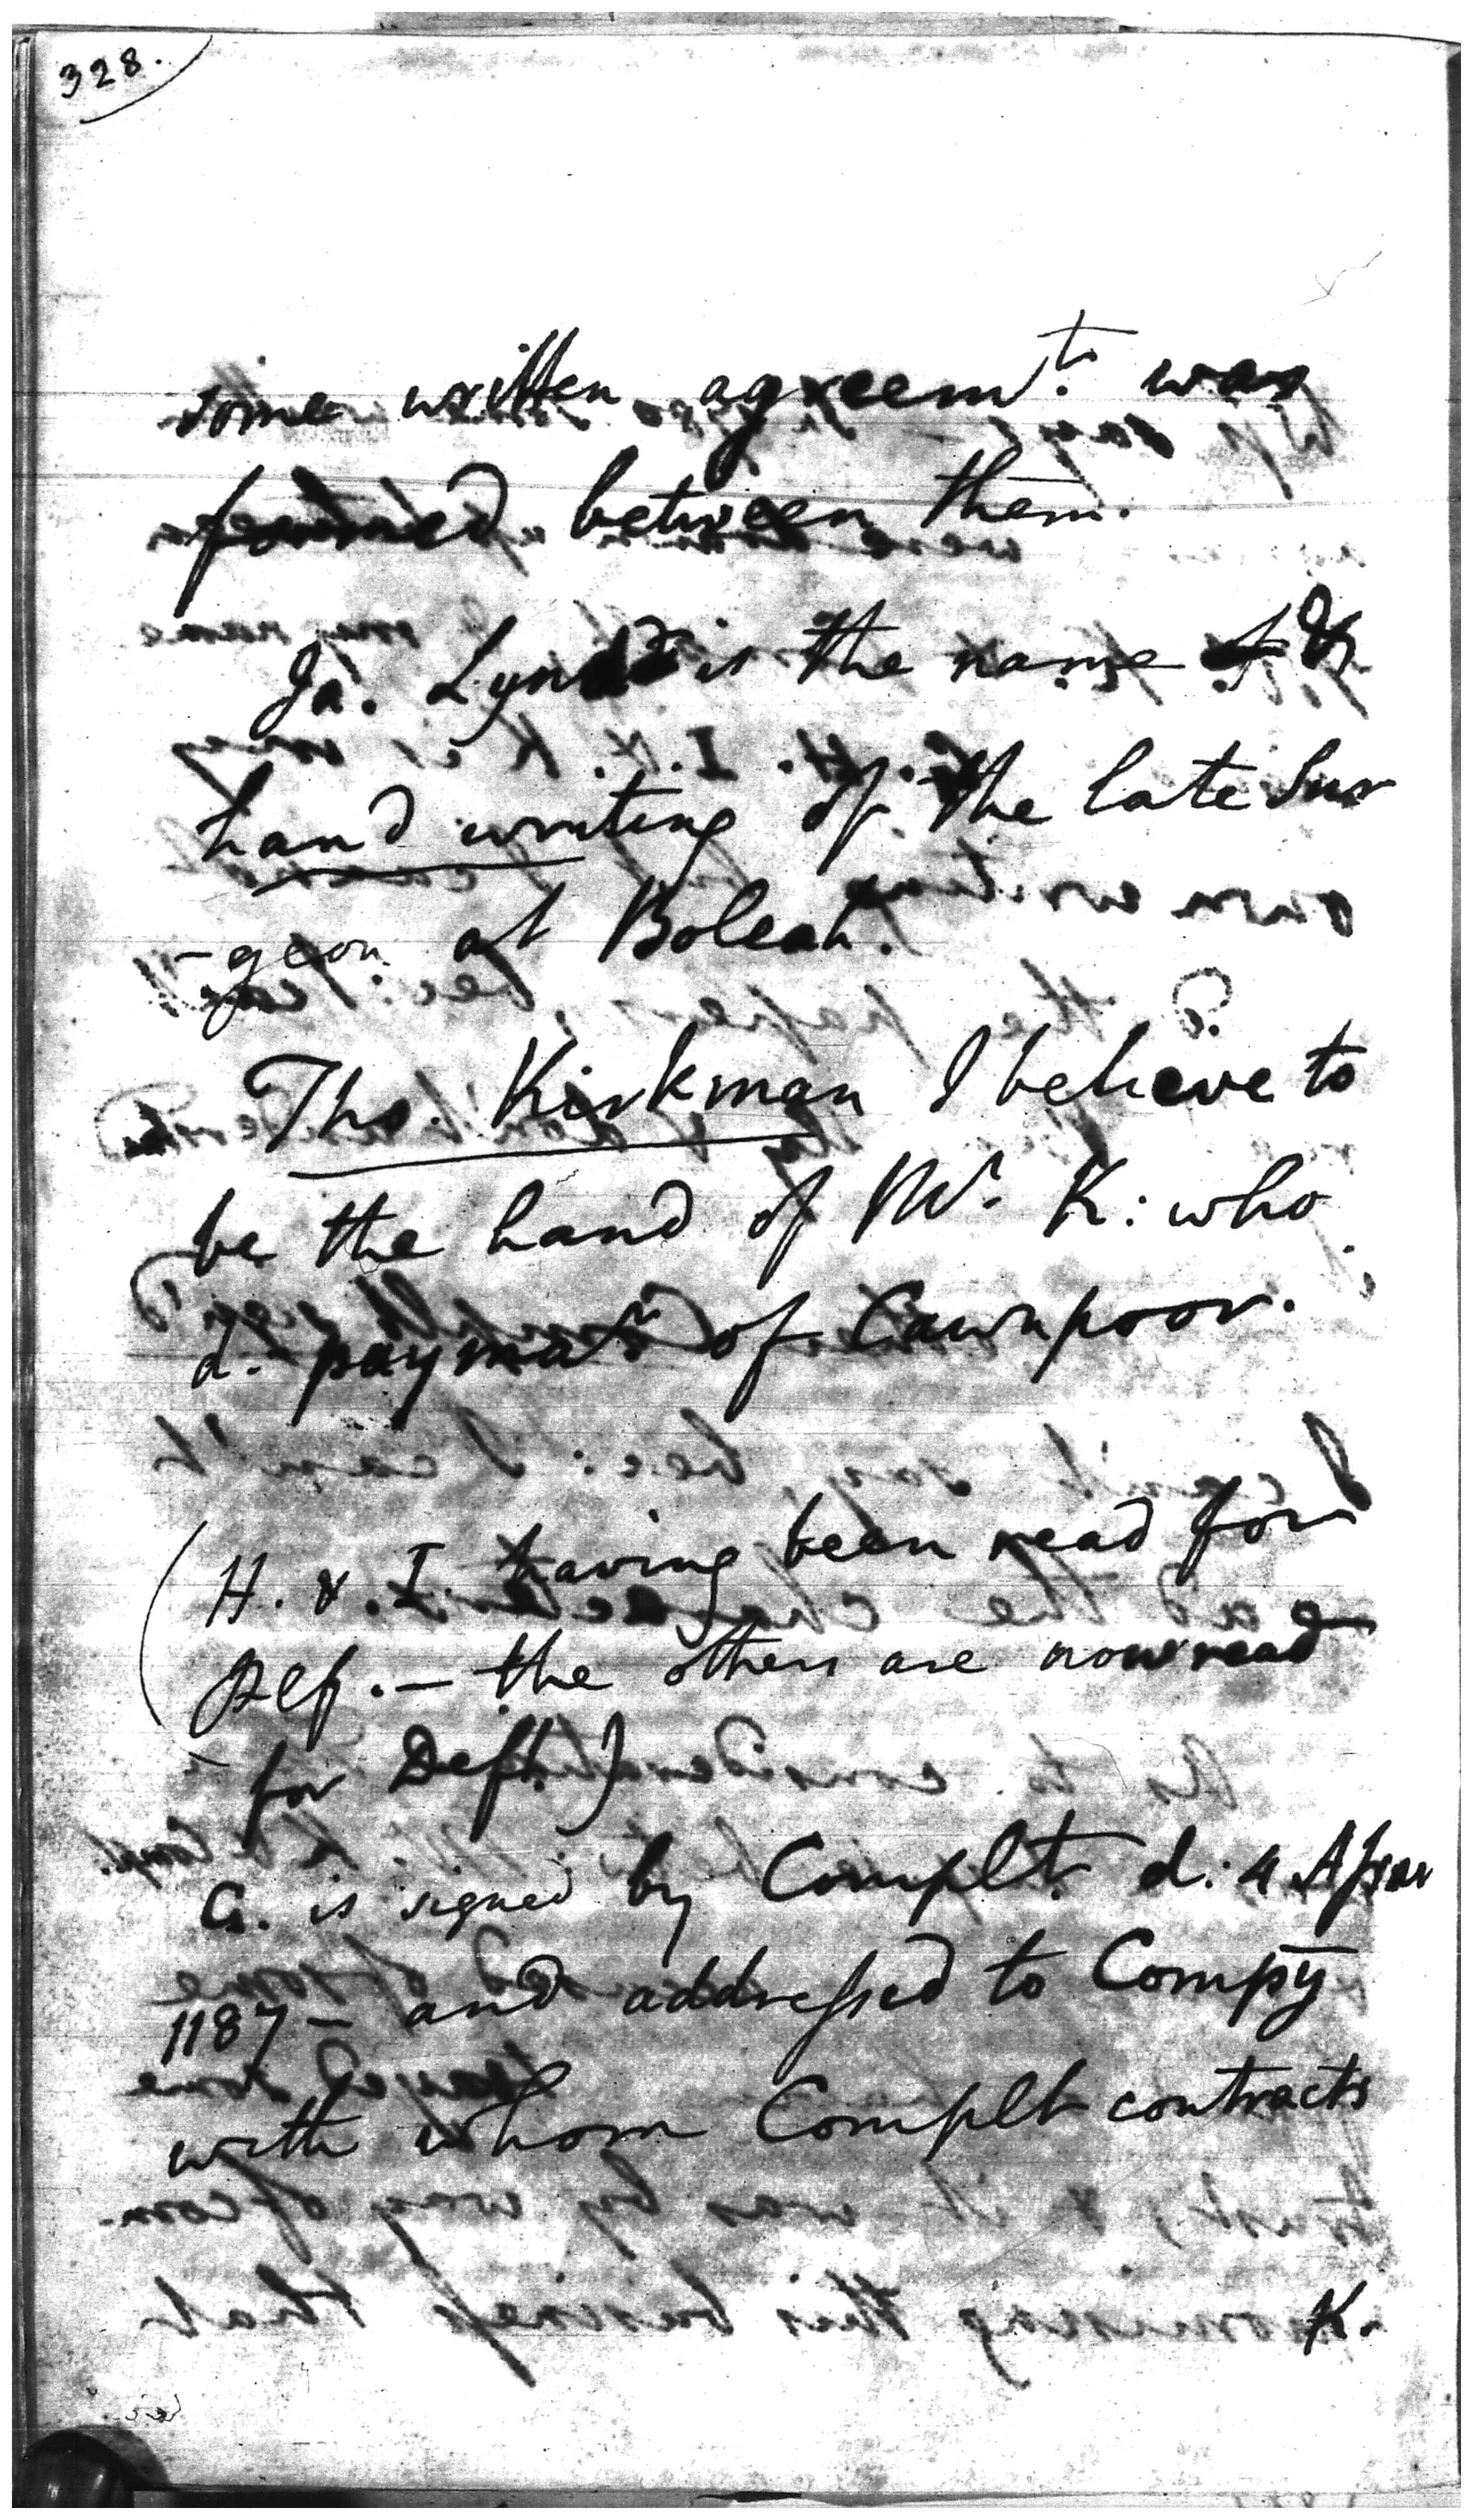 328.
some written agreemt. was
formed between them.
Ja. Lynd is the name &
hand writing of the late Sur
-geon at Boleah.
Tho. Kirkman I believe to
be the hand of Mr. K: who
d. paymastr of Cawnpoor.
(H. & I. having been read for
Dep. — the others are now read
for Deft.)
G. is signed by Complt. d: 4 Assar
1187 — and addressed to Compy
with whom Complt contracts
K.